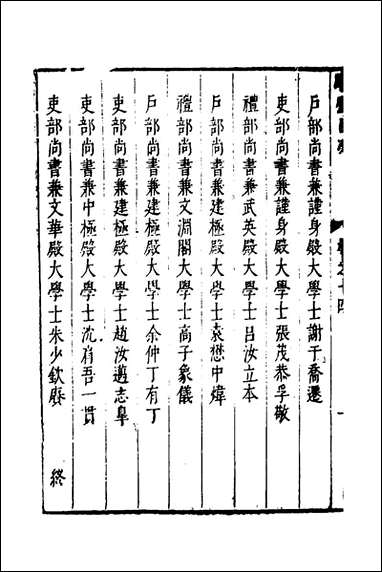 戶部尚書兼謹身殿大學士謝于喬遷
吏部尚書兼謹身殿大學士張茂恭孚敬
禮部尚書兼武英殿大學士呂汝立本
戶部尚書兼建極殿大學士袁懋中煒
禮部尚書兼文淵閣大學士高子象儀
戶部尚書兼建極殿大學士余仲丁有丁
吏部尚書兼建極殿大學士趙汝邁志臯
吏部尚書兼中極殿大學士沈肩吾一貫
吏部尚書兼文華殿大學士朱少欽賡
終